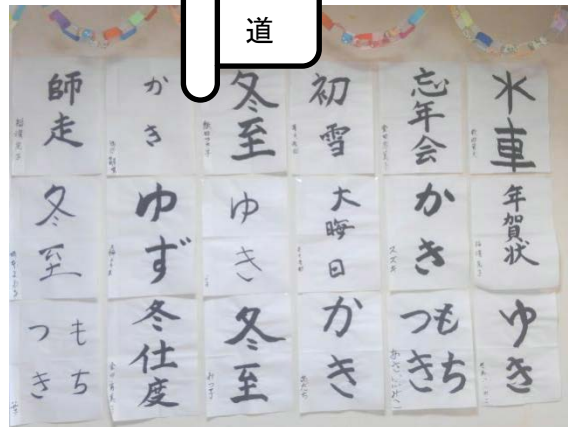 道
師走
かき
冬至
初雪
忘年会
水車
冬至
ゆず
ゆき
大晦日
かき
年賀状
もち
つき
冬仕度
冬至
かき
もち
つき
ゆき